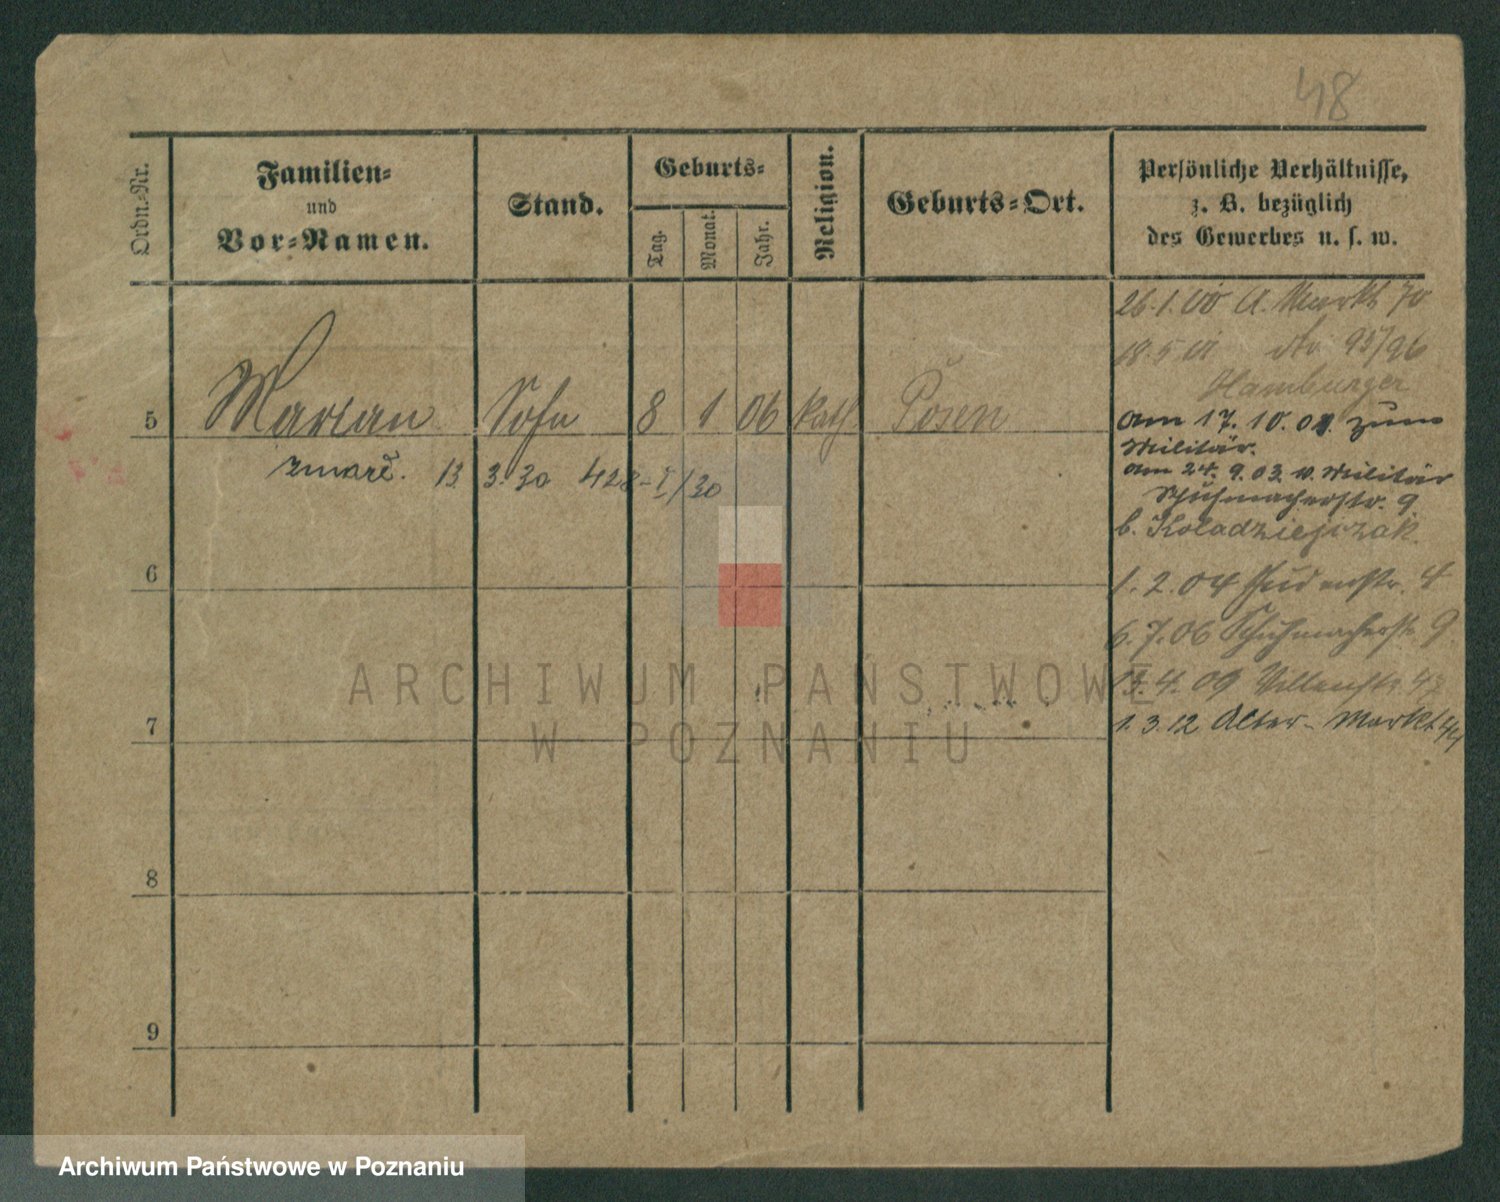 48
Ordn.-Nr.
Familien-
und
Vor-Namen.
Stand.
Geburts-
Tag.
Monat.
Jahr.
Religion.
Geburts-Ort.
Persönliche Verhältnisse,
z. B. bezüglich
des Gewerbes u. s. w.
5 Marian Sohn 8 1 06 kath. Posen
zmarł. 13. 3. 30 428-I/30
6
7
8
9
26.1.00 A. Markt 70
18.5.01 dto 95/96
Hamburger
am 17. 10. 01. zum
Militär.
am 24. 9. 03 v. Militär
Schuhmacherstr. 9
b. Koladziejczak.
1. 2. 04 Judenstr. 4
6. 7. 06 Schuhmacherstr. 9
13. 4. 09
1. 3. 12 Alter-Markt 44
ARCHIWUM PAŃSTWOWE
W POZNANIU
Archiwum Państwowe w Poznaniu